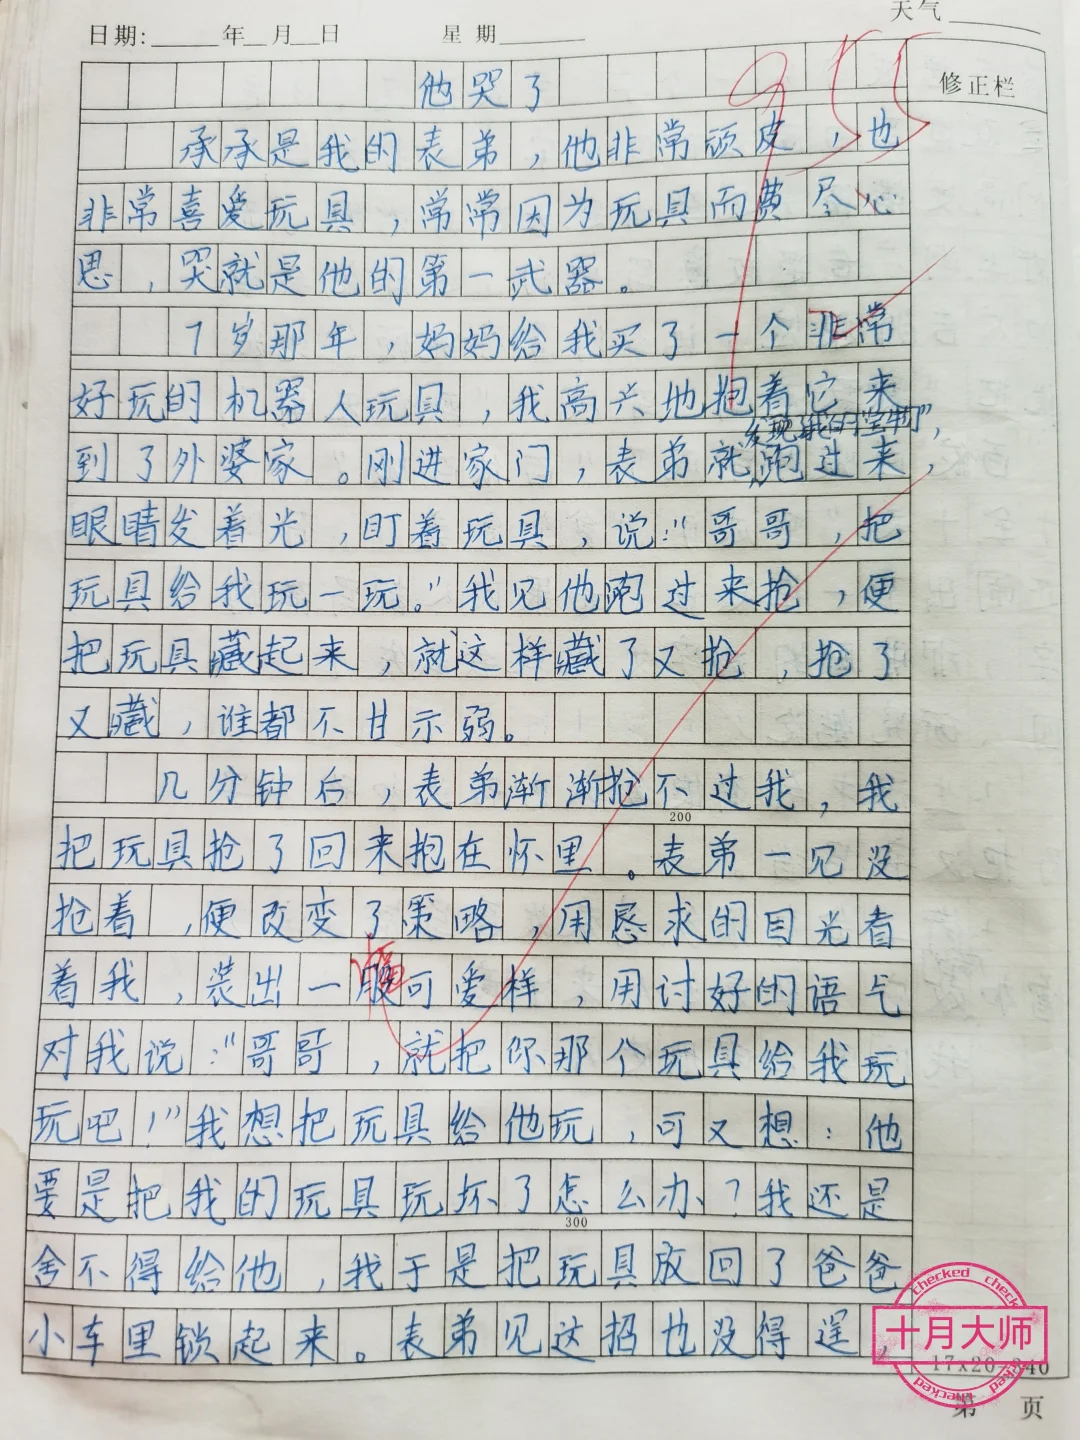 天气
日期: 年 月 日 星期
修正栏
他哭了
承承是我的表弟，他非常顽皮，也
非常喜爱玩具，常常因为玩具而费尽心
思，哭就是他的第一武器。
7岁那年，妈妈给我买了一个非常
好玩的机器人玩具，我高兴地抱着它来
发现我的"宝物"，
到了外婆家。刚进家门，表弟就跑过来，
眼睛发着光，盯着玩具，说："哥哥，把
玩具给我玩一玩。"我见他跑过来抢，便
把玩具藏起来，就这样藏了又抢，抢了
又藏，谁都不甘示弱。
几分钟后，表弟渐渐抢不过我，我
200
把玩具抢了回来抱在怀里。表弟一见没
抢着，便改变了策略，用恳求的目光看
着我，装出一副可爱样，用讨好的语气
对我说："哥哥，就把你那个玩具给我玩
玩吧！"我想把玩具给他玩，可又想：他
要是把我的玩具玩坏了怎么办？我还是
300
舍不得给他，我于是把玩具放回了爸爸
小车里锁起来。表弟见这招也没得逞，
checked checked
十月大师
checked
17x20=340
第 页